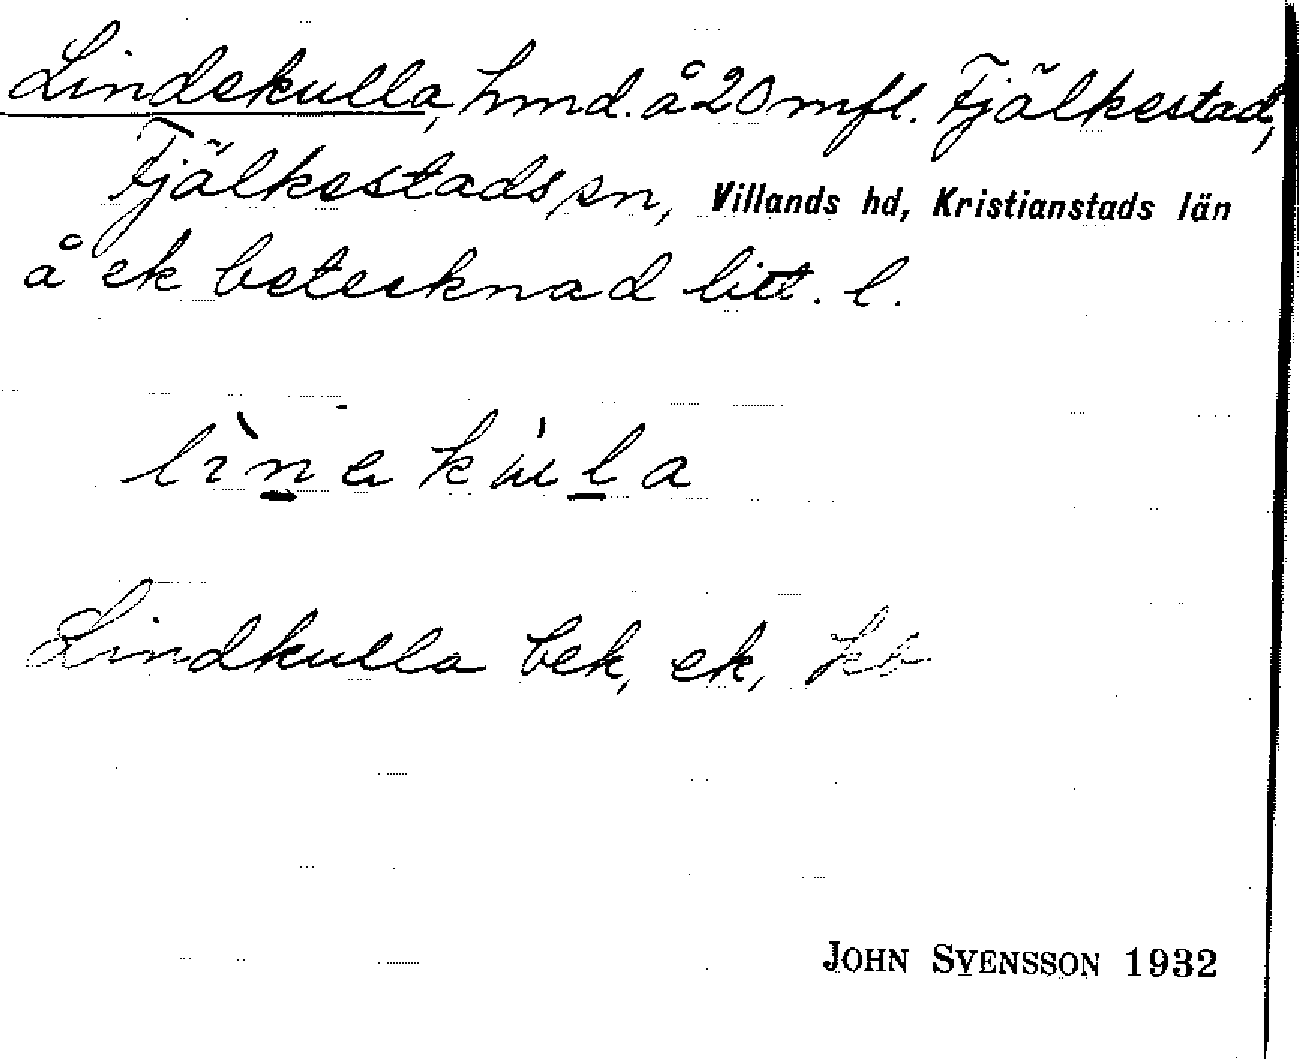 Lindekulla, hmd. å 20 mfl. Fjälkestad,
Fjälkestads sn, Villands hd, Kristianstads län
å ek betecknad litt. l.
Lindkulla bek, ek,
JOHN SVENSSON 1932